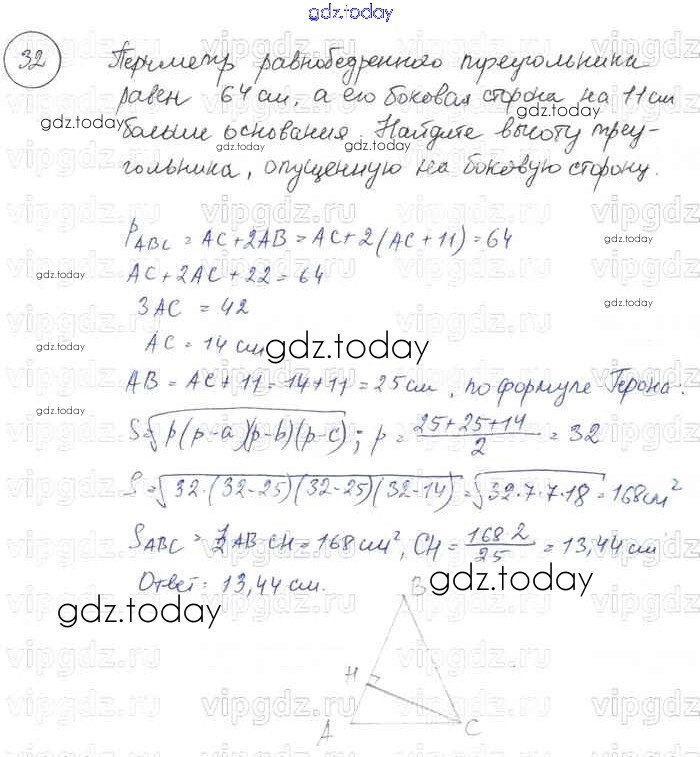 gdz.today
32 Периметр равнобедренного треугольника
равен 64 см, а его боковая сторона на 11 см
больше основания. Найдите высоту треу-
гольника, опущенную на боковую сторону.
P_ABC = AC+2AB = AC+2(AC+11) = 64
AC+2AC+22 = 64
3AC = 42
AC = 14 см
AB = AC+11 = 14+11 = 25 см, по формуле Герона:
S=√p(p-a)(p-b)(p-c); p = (25+25+14)/2 = 32
S = √32·(32-25)(32-25)(32-14) = √32·7·7·18 = 168 см²
S_ABC = 1/2 AB·CH = 168 см², CH = 168·2/25 = 13,44 см
Ответ: 13,44 см.
B
H
A C
gdz.today
gdz.today
gdz.today
gdz.today
gdz.today
gdz.today
gdz.today
gdz.today
gdz.today
gdz.today
gdz.today
gdz.today
gdz.today
vipgdz.ru